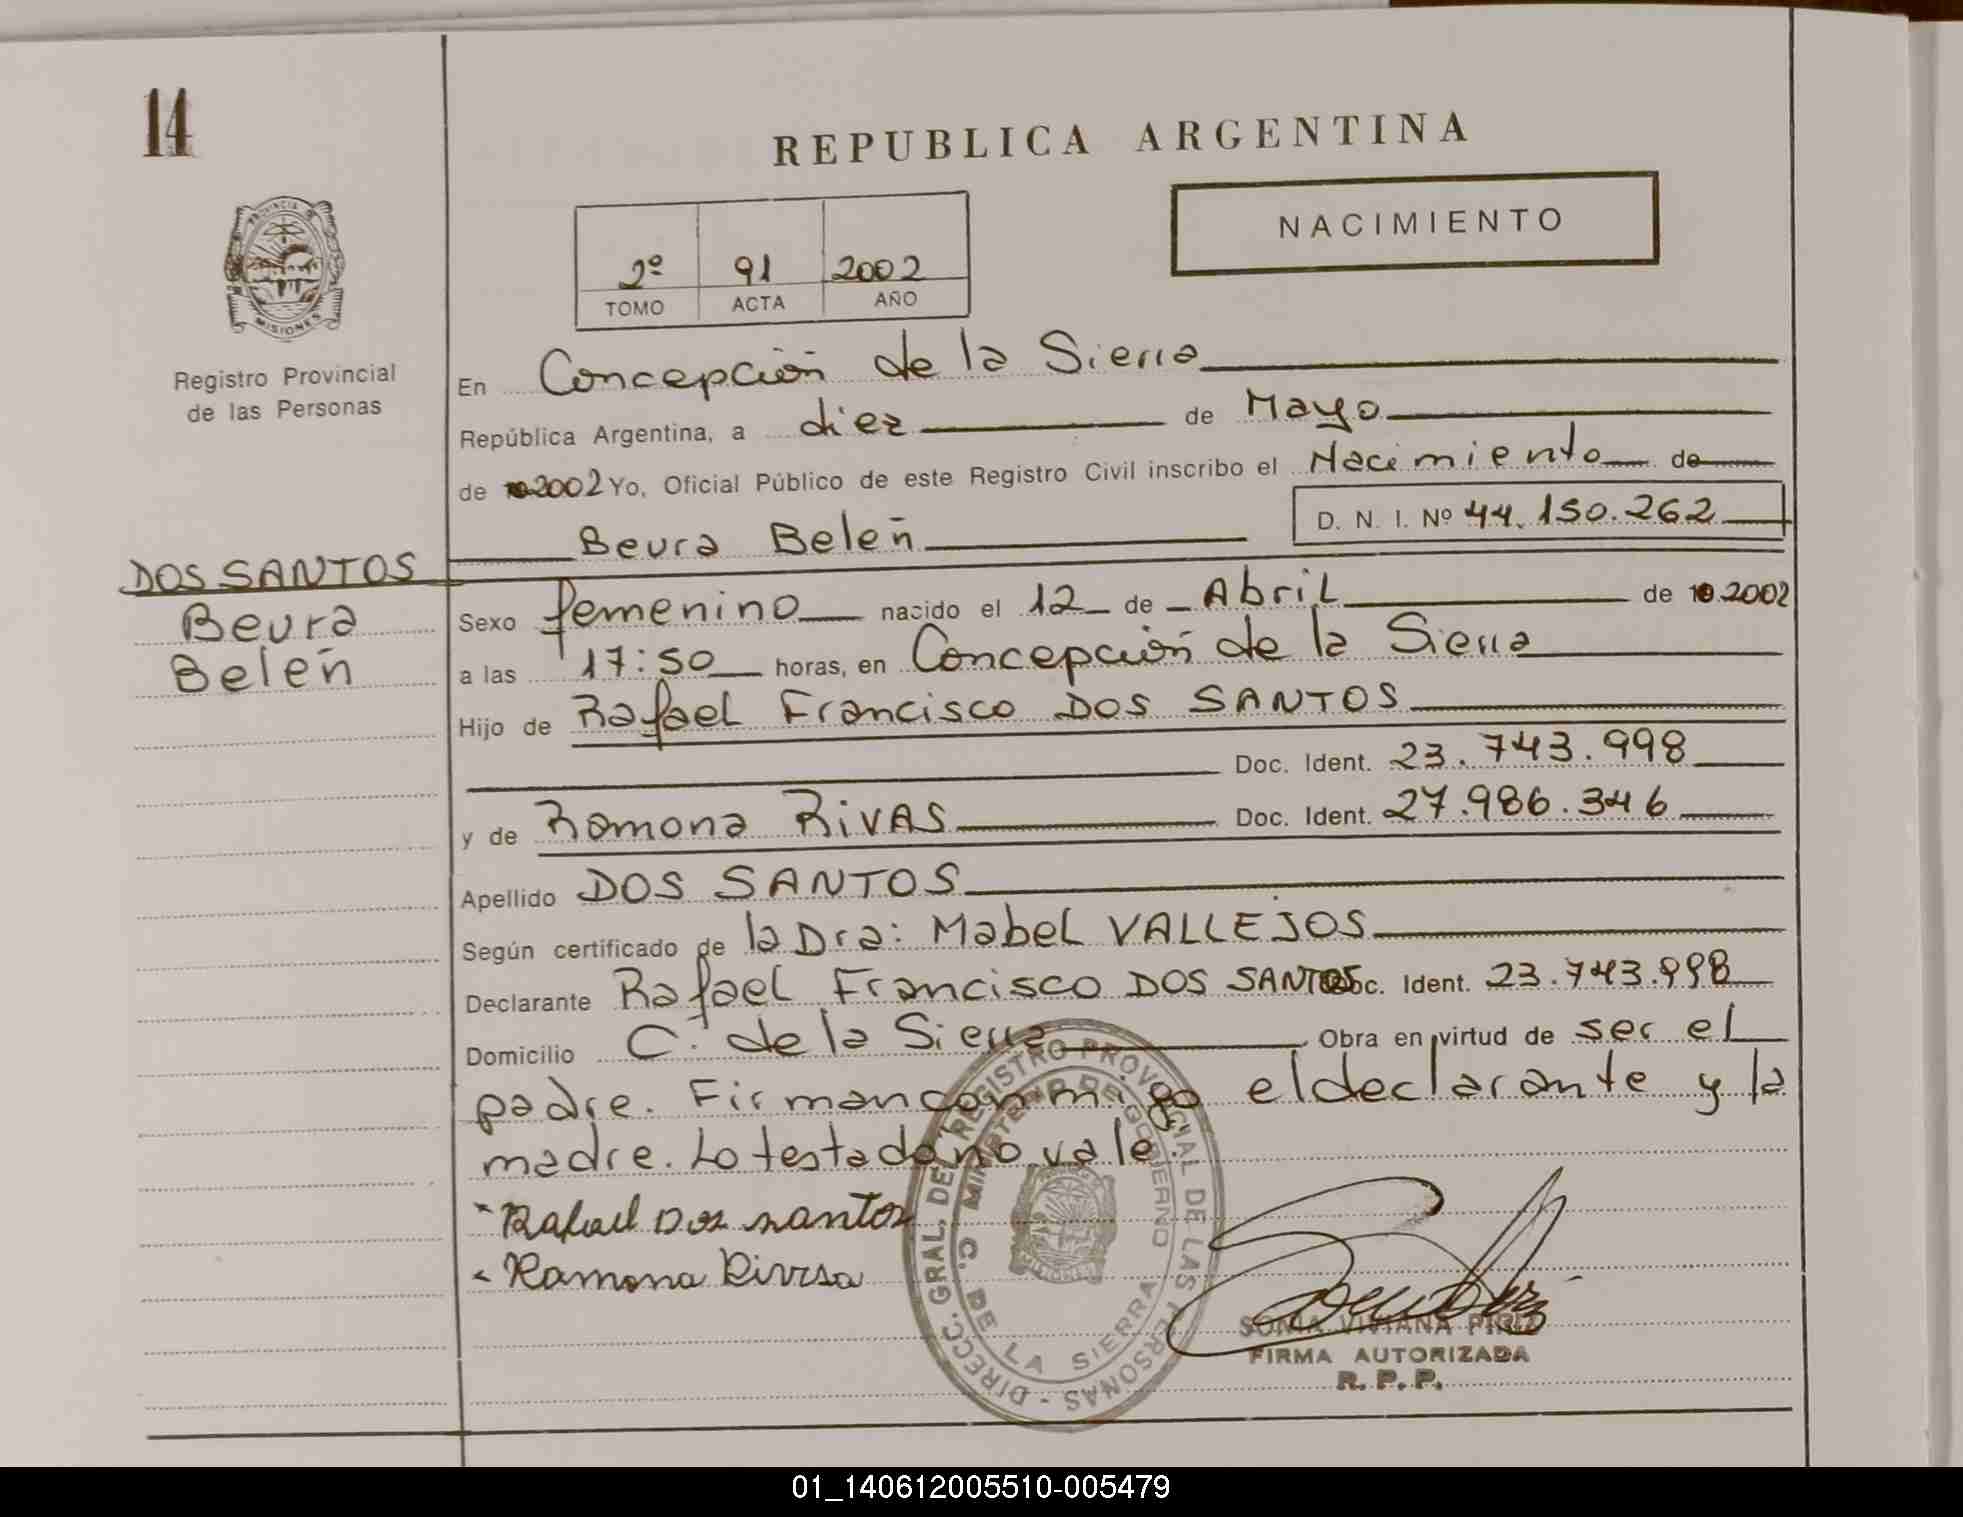 14
PROVINCIA D
MISIONES
Registro Provincial
de las Personas
DOS SANTOS
Beura
Belén
REPUBLICA ARGENTINA
NACIMIENTO
2º 91 2002
TOMO ACTA AÑO
En Concepción de la Sierra
República Argentina, a diez de Mayo
de 2002 Yo, Oficial Público de este Registro Civil inscribo el Nacimiento de
Beura Belén D. N. I. Nº 44.150.262
Sexo femenino nacido el 12 de Abril de 2002
a las 17:50 horas, en Concepción de la Sierra
Hijo de Rafael Francisco DOS SANTOS
Doc. Ident. 23.743.998
y de Ramona RIVAS Doc. Ident. 27.986.346
Apellido DOS SANTOS
Según certificado de la Dra: Mabel VALLEJOS
Declarante Rafael Francisco DOS SANTOS Doc. Ident. 23.743.998
Domicilio C. de la Sierra Obra en virtud de ser el
padre. Firman conmigo el declarante y la
madre. Lo testado no vale.
Rafael Dos santos
Ramona
DIRECC. GRAL. DEL REGISTRO PROVINCIAL DE LAS PERSONAS -
MINISTERIO DE GOBIERNO
C. DE LA SIERRA
SONIA VIVIANA PIRIZ
FIRMA AUTORIZADA
R. P. P.
01_140612005510-005479